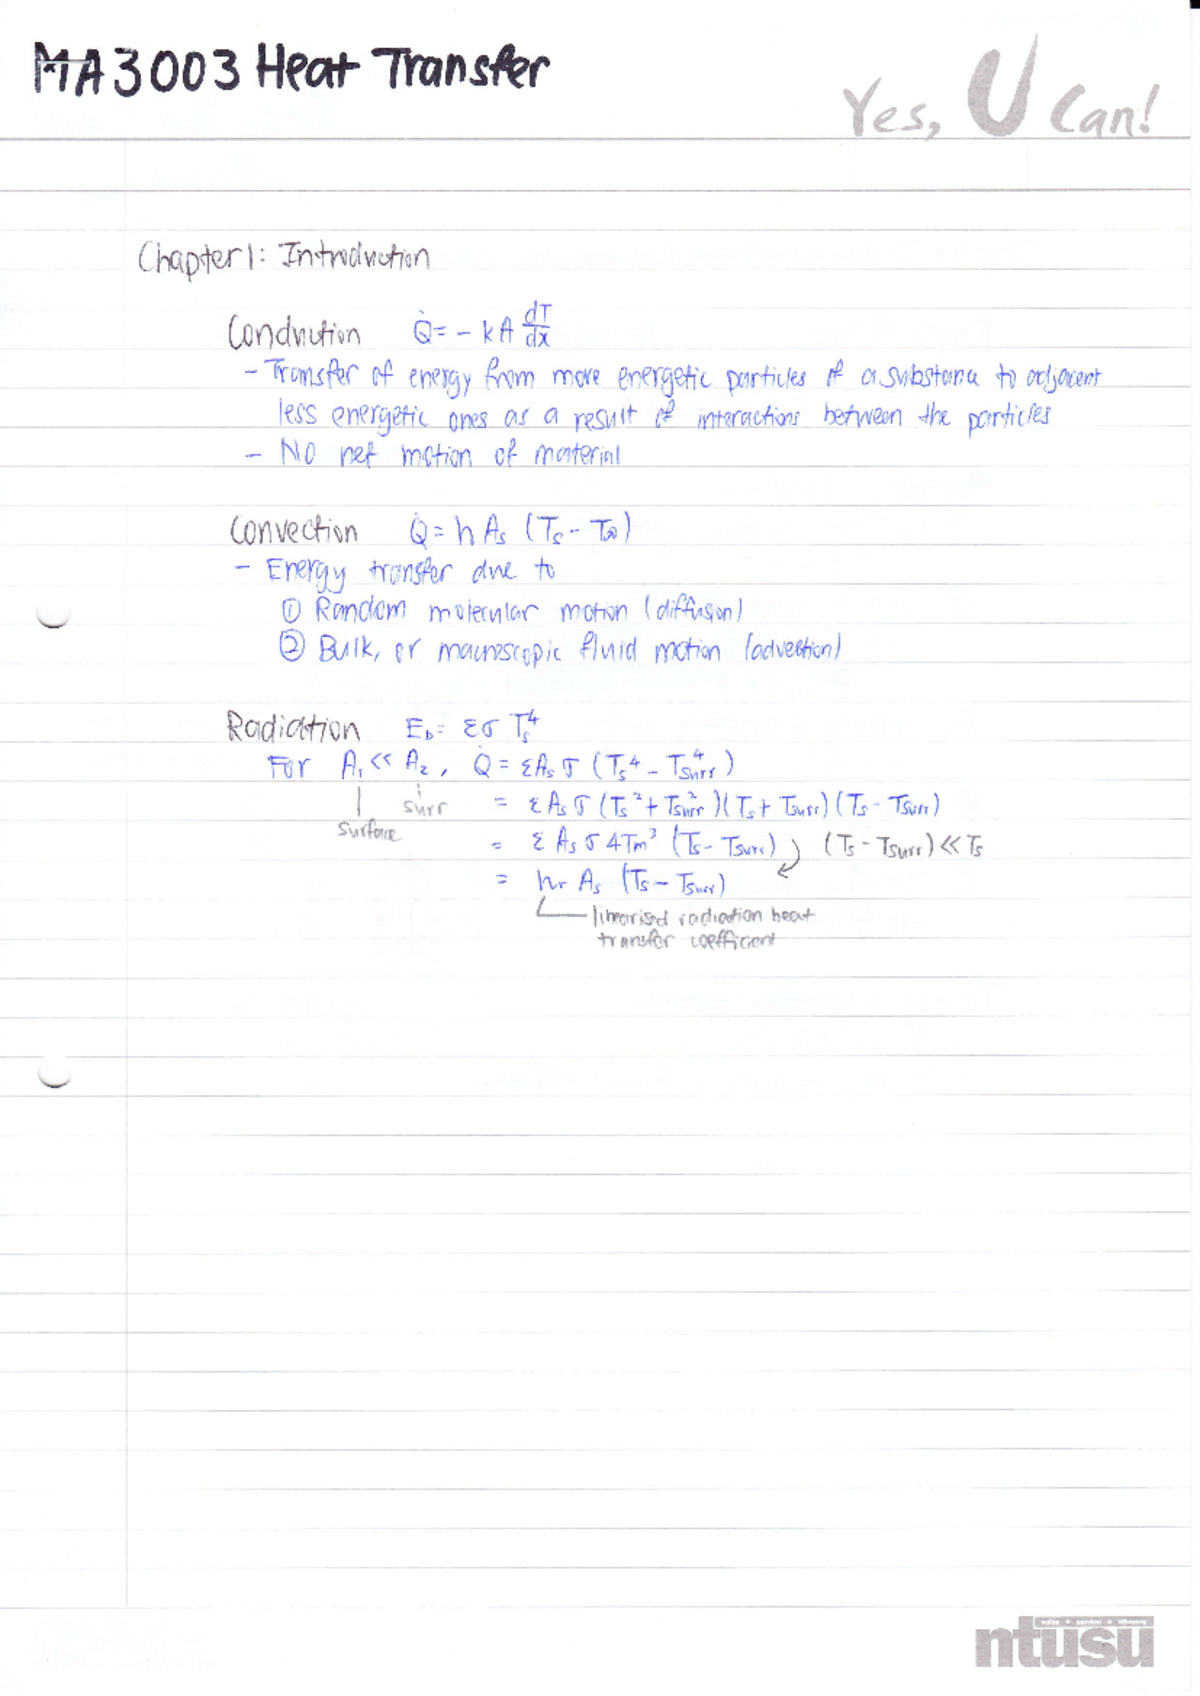 MA3003 Heat Transfer
Yes, U Can!
Chapter 1: Introduction
Conduction Q̇ = - kA dT/dx
- Transfer of energy from more energetic particles of a substance to adjacent
less energetic ones as a result of interactions between the particles
- No net motion of material
Convection Q̇ = h As (Ts - T∞)
- Energy transfer due to
① Random molecular motion (diffusion)
② Bulk, or macroscopic fluid motion (advection)
Radiation Eb = εσ Ts⁴
For A₁ << A₂, Q̇ = εAs σ (Ts⁴ - Tsurr⁴)
surface surr = ε As σ (Ts² + Tsurr²)(Ts + Tsurr)(Ts - Tsurr)
= ε As σ 4Tm³ (Ts - Tsurr) (Ts - Tsurr) << Ts
= hr As (Ts - Tsurr)
linearised radiation heat
transfer coefficient
ntusu